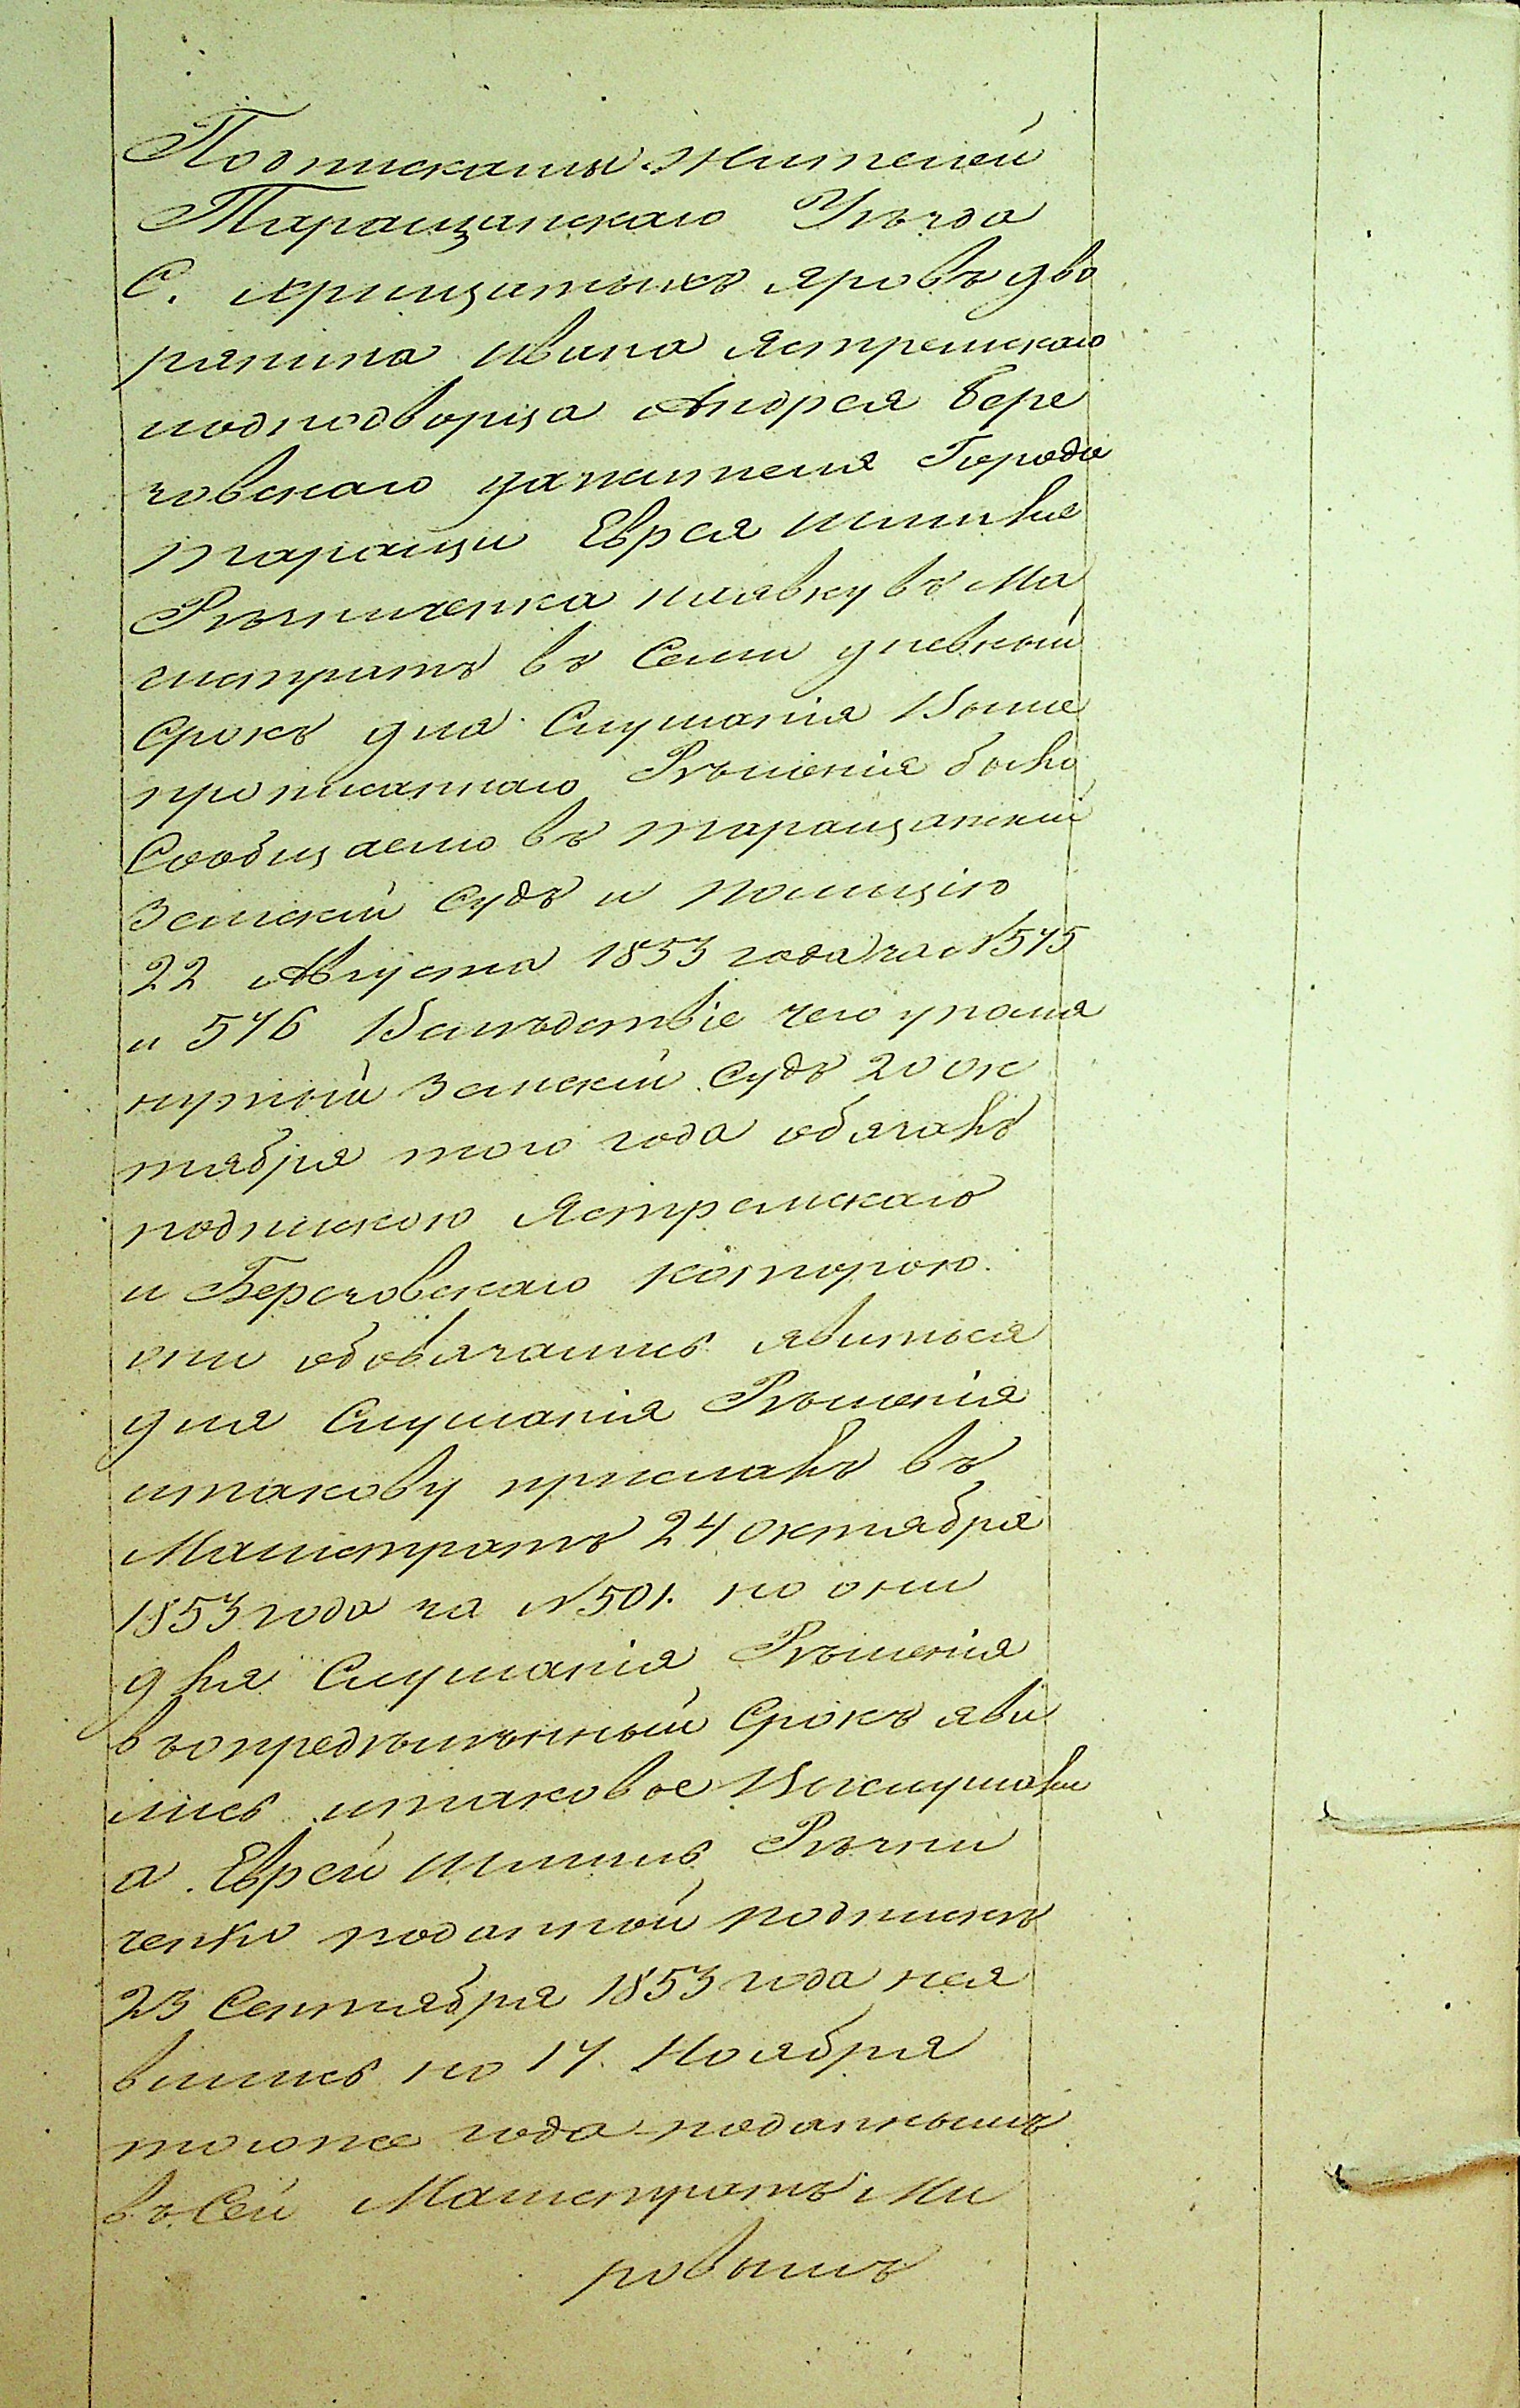 Подписками жителей
Таращанскаго Уѣзда
С. Хрищатыхъ яровъ дво
рянина Ивана Ястремскаго
иоднодворца Андрея Бере
зовскаго и жителя Города
таращи Еврея Шмиля
Рѣзниченка наявку въ Ма
гистратъ въ Семи дневный
Срокъ для Слушанія Выше
прописаннаго Рѣшенія было
Сообщаемо въ таращанскій
Земскій Судъ и полицію
22 Августа 1853 года за №575
и 576 Вслѣдствіе чего упомя
нутый Земскій Судъ 20 ок
тября того года обязалъ
подпискою Ястремскаго
и Березовскаго которою
они обовязались явиться
для Слушанія Рѣшенія
итакову прислалъ въ
Магистратъ 24 октября
1853 года за №501. но они
для Слушанія Рѣшенія
вопредѣлѣнный Срокъ яви
лись итаковое Выслушали
а Еврей Шмиль Рѣзни
ченко поданной подпискѣ
23 Сентября 1853 года нея
вились но 17 Ноября
тогоже года поданнымъ
въ Сей Магистратъ Ми
ровымъ